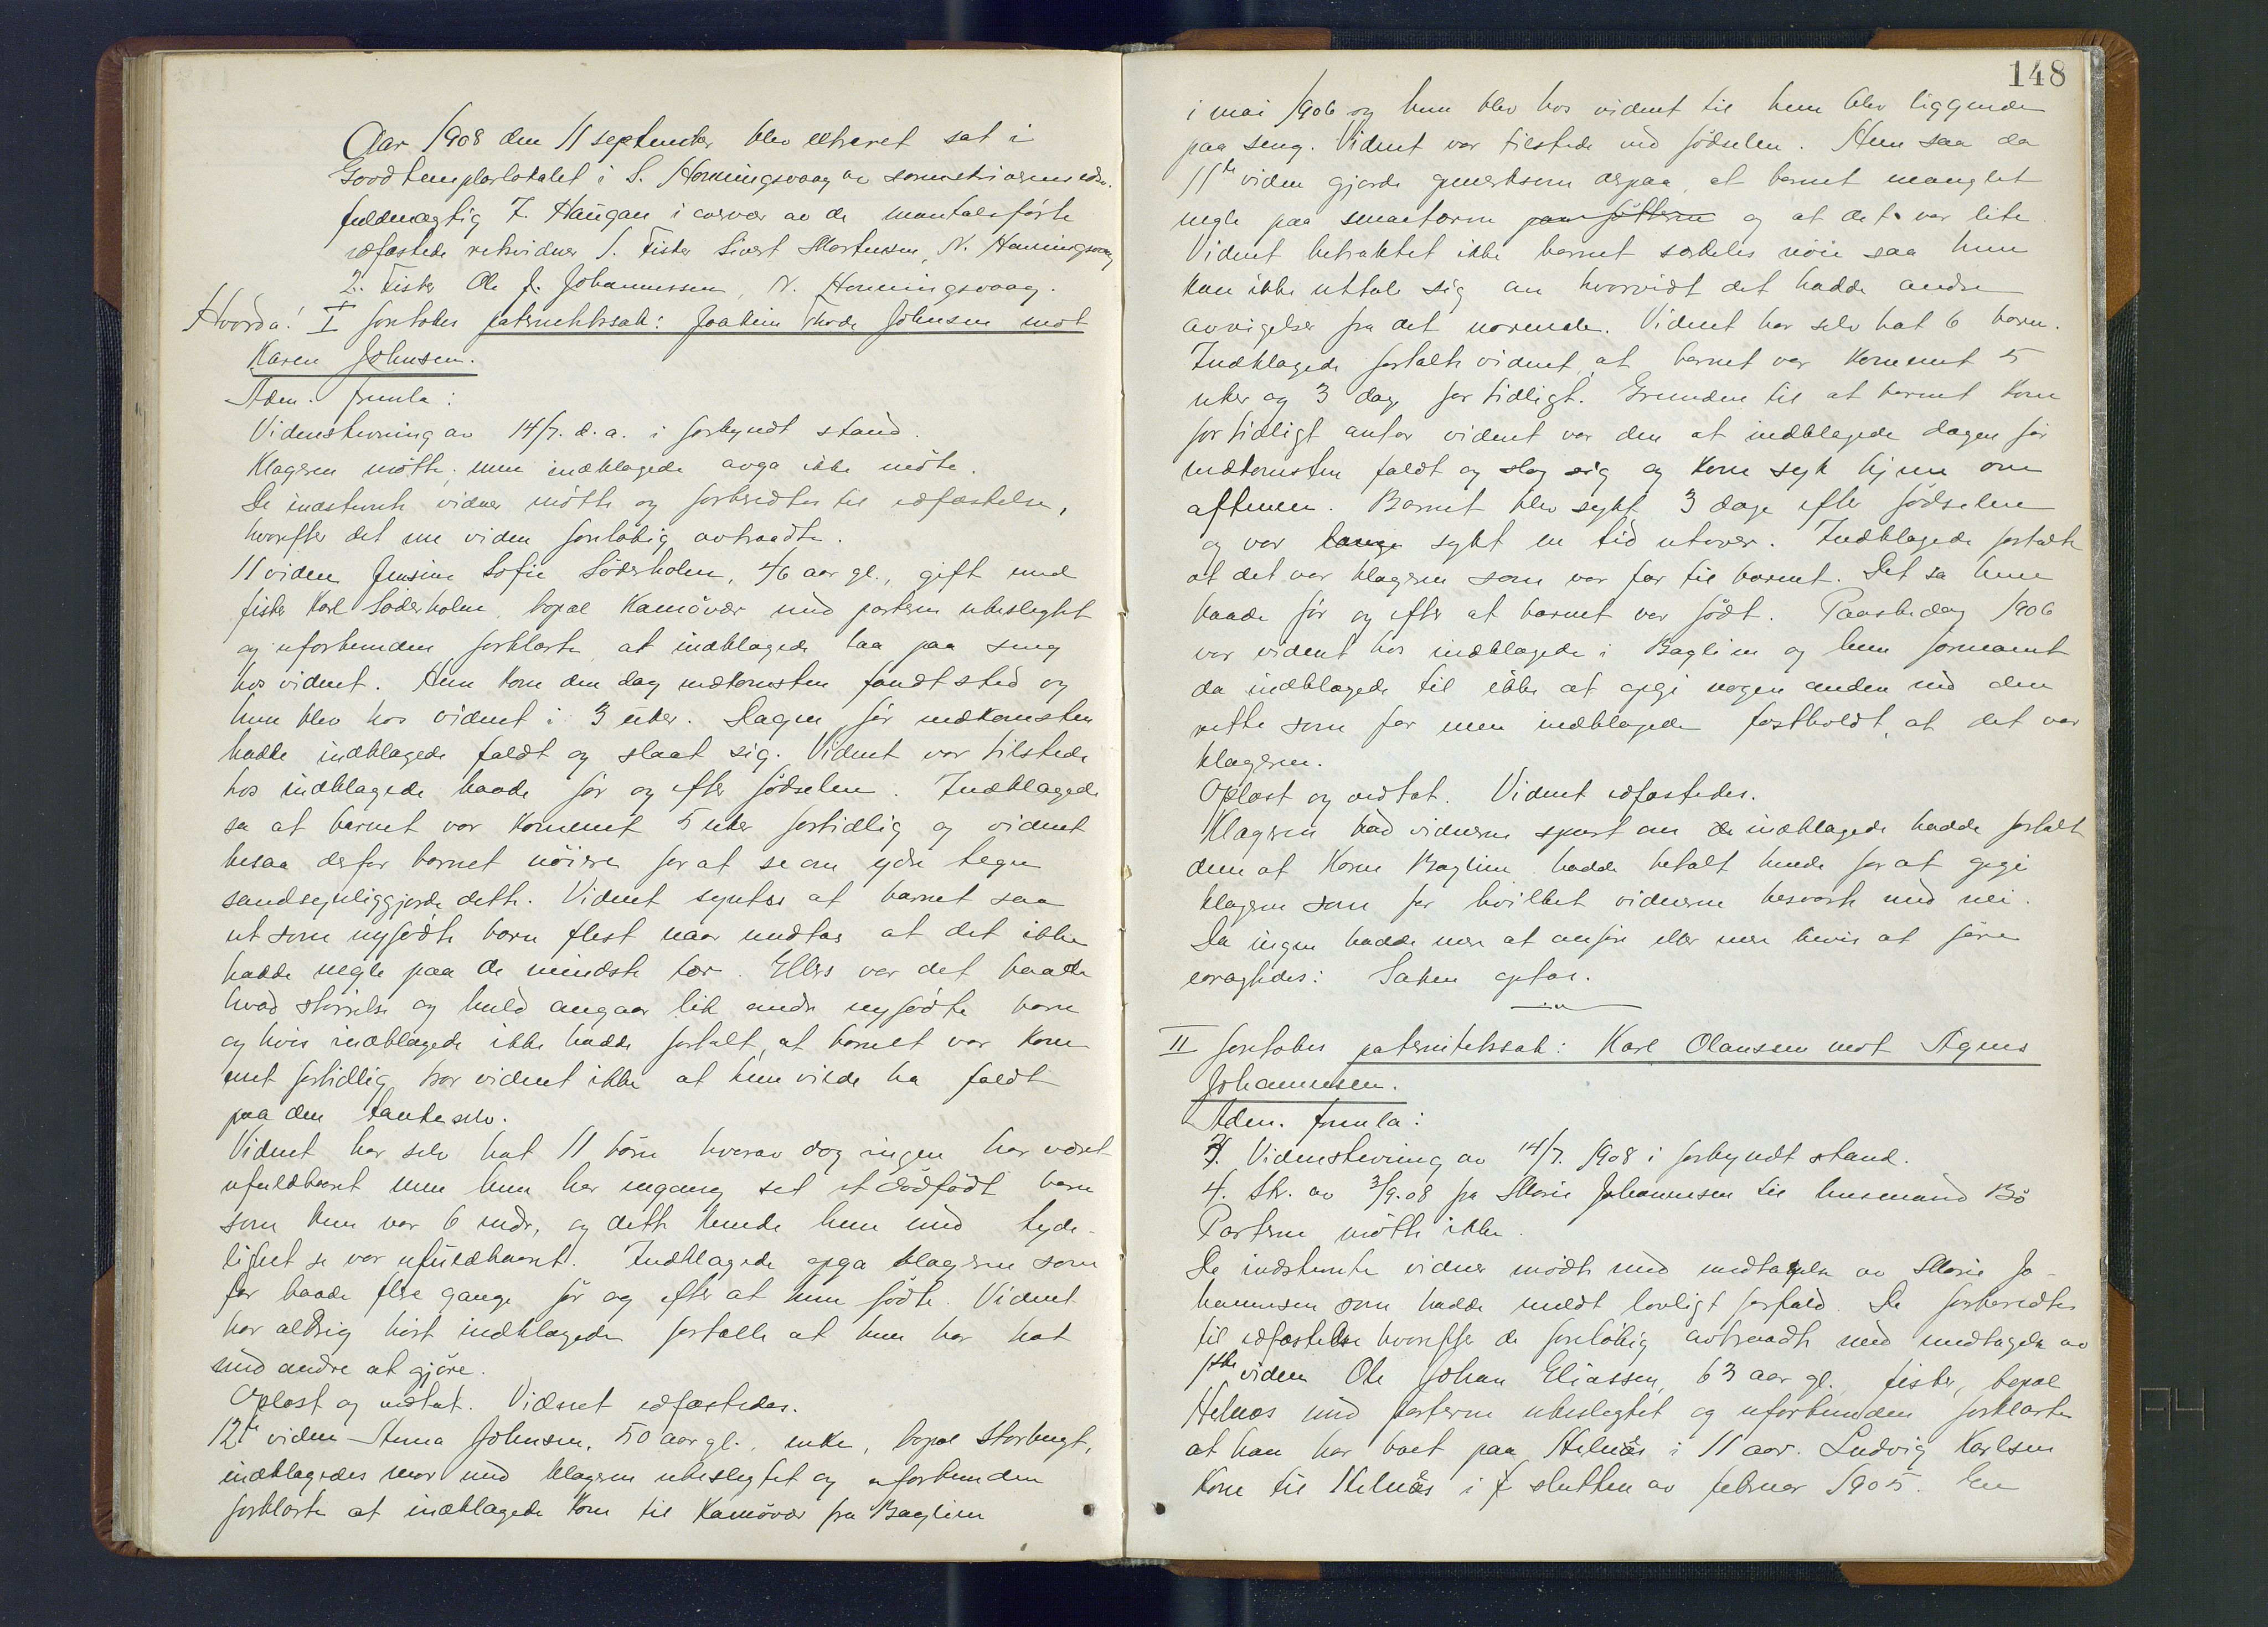 Aar 1908 den 11 september blev extraret sat i
Goodtemplarlokalet i S. Honningsvaag av sorenskriverens edsv.
fuldmægtig J. Haugan i overvær av de mantalsførte
edfæstede retsvidner 1. Fisker Sivert Mortensen, N. Honningsvaag
2. Fisker Ole J. Johannessen, N. Honningsvaag.
Hvorda! I foretokes paternitetssak: Joakim Thode Johnsen mot
Karen Johnsen.
Adm. formla:
Vidnestevning av 14/7. d.a. i forkyndt stand.
Klageren møtte; men indklagede avga ikke møte.
De indstevnte vidner møtte og forberedtes til edfæstelse,
hvorefter det ene vidne foreløbig avtraadte.
11 vidne Jensine Sofie Søderholm, 46 aar gl., gift med
fisker Karl Søderholm, bopæl Kamøvær med parterne ubeslegtet
og uforbunden forklarte, at indklagede laa paa seng
hos vidnet. Hun kom den dag nedkomsten fandt sted og
hun blev hos vidnet i 3 uker. Dagen før nedkomsten
hadde indklagede faldt og slaat sig. Vidnet var tilstede
hos indklagede baade før og efter fødselen. Indklagede
sa at barnet var kommet 5 uker fortidlig og vidnet
besaa derfor barnet nøiere for at se om ydre tegn
sandsynliggjorde dette. Vidnet syntes at barnet saa
ut som nyfødte barn flest naar undtas at det ikke
hadde negle paa de mindste tær. Ellers var det baade
hvad størrelse og huld angaar lik andre nyfødte barn
og hvis indklagede ikke hadde fortalt, at barnet var kom
met fortidlig, tror vidnet ikke at hun vilde ha faldt
paa den tanke selv.
Vidnet har selv hat 11 børn hvorav dog ingen har været
ufuldbaaret men hun har engang set et dødfødt barn
som kun var 6 mdr, og dette kunde hun med tyde-
lighet se var ufuldbaaret. Indklagede opga klageren som
far baade flere gange før og efter at hun fødte. Vidnet
har aldrig hørt indklagede fortælle at hun har hat
med andre at gjøre.
Oplæst og vedtat. Vidnet edfæstedes.
12te vidne Anna Johnsen, 50 aar gl., enke, bopæl Storbugt,
indklagedes mor med klageren ubeslegtet og uforbunden
forklarte at indklagede kom til Kamøvær fra Baglien
148
i mai 1906 og hun blev hos vidnet til hun blev liggende
paa seng. Vidnet var tilstede ved fødselen. Hun saa da
11te vidne gjorde opmerksom derpaa, at barnet manglet
negle paa smaatærne paa føtterne og at det var lite.
Vidnet betraktet ikke barnet særdeles nøie saa hun
kan ikke uttale sig om hvorvidt det hadde andre
avvigelser fra det normale. Vidnet har selv hat 6 barn.
Indklagede fortalte vidnet, at barnet var kommet 5
uker og 3 dage for tidligt. Grunden til at barnet kom
for tidligt antar vidnet var den at indklagede dagen før
nedkomsten faldt og slog sig og kom syk hjem om
aftenen. Barnet blev sykt 3 dage efter fødselen
og var længe sykt en tid utover. Indklagede fortalte
at det var klageren som var far til barnet. Det sa hun
baade før og efter at barnet var født. Paaskedag 1906
var vidnet hos indklagede i Baglien og hun formanet
da indklagede til ikke at opgi nogen anden end den
rette som far men indklagede fastholdt, at det var
klageren.
Oplæst og vedtat. Vidnet edfæstedes.
Klageren bad vidnerne spurt om de indklagede hadde fortalt
dem at Karen Baglien hadde betalt hende for at opgi
klageren som far hvilket vidnerne besvarte med nei.
Da ingen hadde mere at anføre eller mere bevis at føre
eragtedes: Saken optas.
II foretokes paternitetssak: Karl Olaussen mot Agnes
Johannessen.
Adm. formla:
3. Vidnestevning av 14/7. 1908 i forkyndt stand.
4. Skr. av 3/9.08 fra Marie Johannessen til lensmand Bø
Parterne møtte ikke.
De indstevnte vidner mødte med undtagelse av Marie Jo-
hannessen som hadde meldt lovligt forfald. De forberedtes
til edfæstelse hvorefter de foreløbig avtraadte med undtagelse av
1ste vidne Ole Johan Eliassen, 63 aar gl. fisker, bopæl
Helnæs med parterne ubeslegtet og uforbunden forklarte
at han har boet paa Helnæs i 11 aar. Ludvig Karlsen
kom til Helnæs i slutten av februar 1905. En